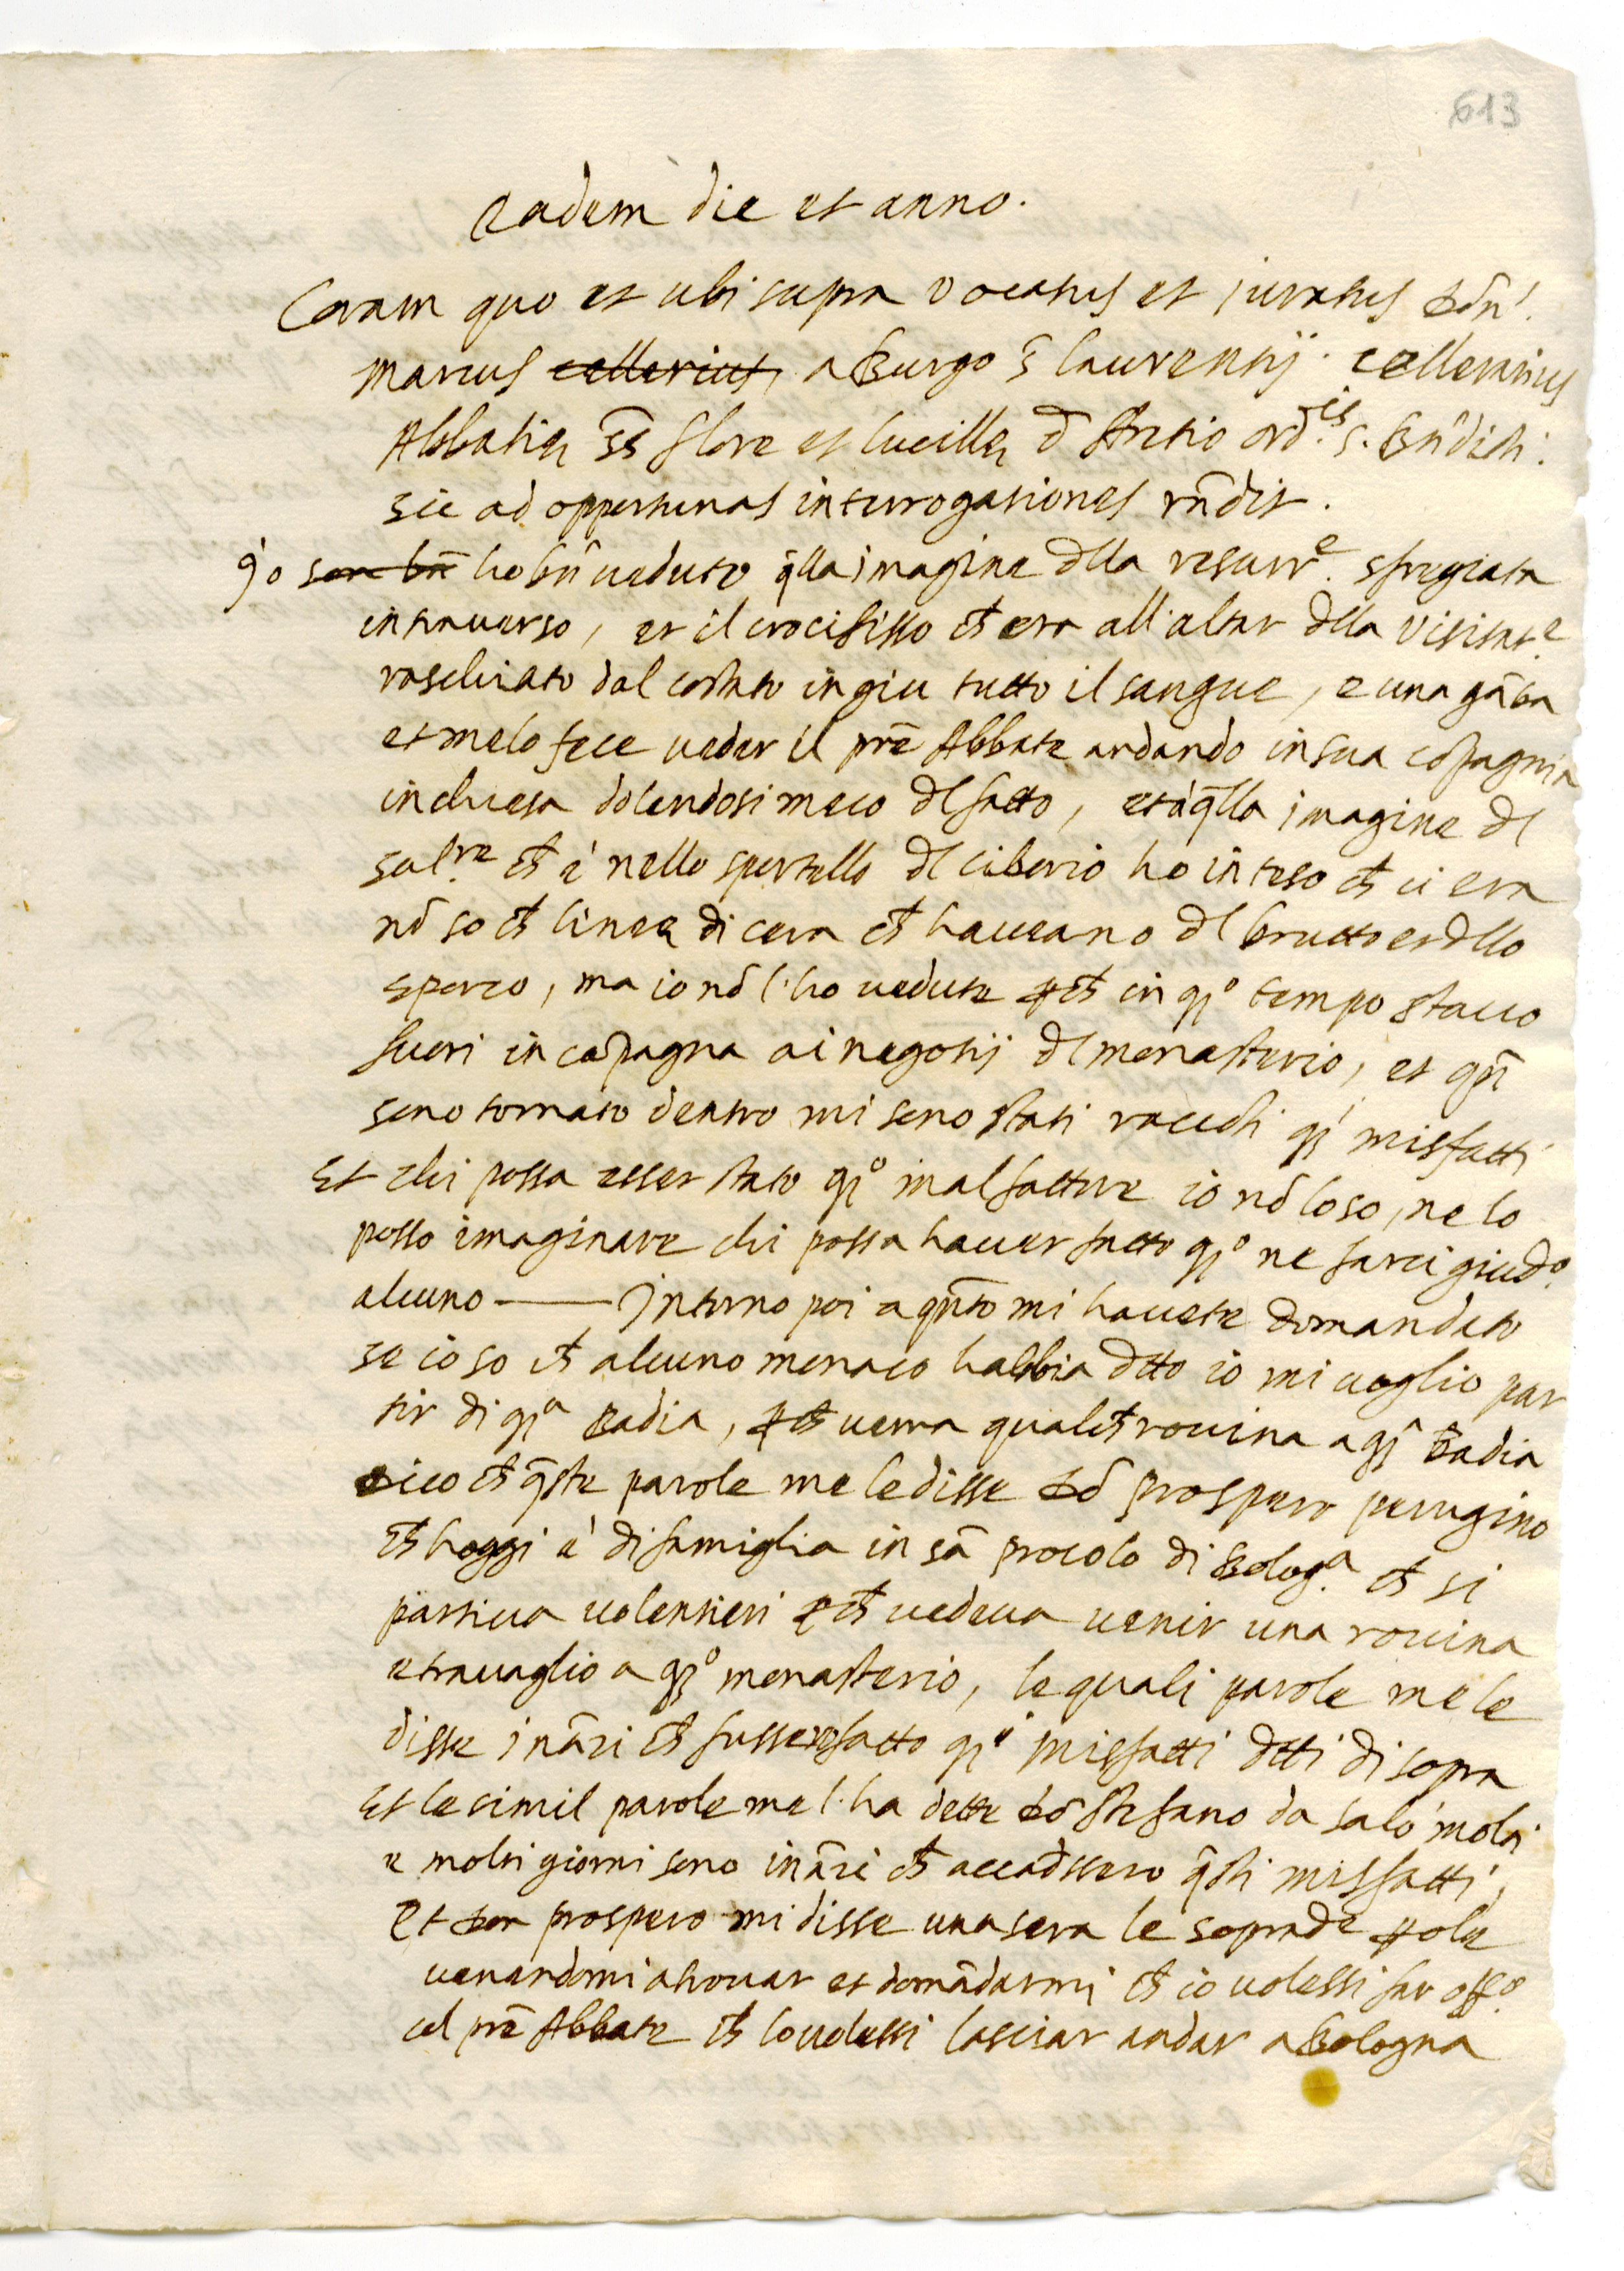 613
Eadem die et anno.
Coram quo et ubi supra vocatus et juratus Dōn!
Marcus cellerius, a Burgo S̄ Laurentij. cellerarius
Abbatię SS̄ Flore et Lucillę d̄ Aretio ord.is S. Bn̄dicti.
sic ad oppertunas interrogationes rn̄dit.
Jo son bn̄ ho bn̄ veduto q̄lla imagine dlla resurr.e sfregiata
in traverso, et il crocifisso ch̄ era all'altar dlla Visitat.e
raschiato dal costato in giu tutto il sangue, e una gāba
et melo fece veder il prē Abbate andando in sua cōpagnia
in chiesa dolendosi meco dl fatto, et à q̄lla imagine dl
sal.re ch̄ è nello sportello dl ciborio ho inteso ch̄ ci era
nō so ch̄ linee di cera ch̄ haveano dl brutto et dllo
sporco, ma io nō l'ho vedute p ch̄ in qſo tempo stavo
fuori in cāpagna ai negotij dl monasterio, et qn̄
sono tornato dentro mi sono stati raccōti qſi misfatti
Et chi possa esser stato qſo malfattore io nō lo so, ne lo
posso imaginare chi possa haver fatto qſo ne farei giud.o
alcuno —— Intorno poi a qn̄to mi havete domandato
se io so ch̄ alcuno monaco habbia dtto io mi voglio par
tir di qſa Badia, p ch̄ verra qualch̄ rovina a qſa Badia
Dico ch̄ q̄ste parole me le disse Dō Prospero perugino
ch̄ hoggi è di famiglia in sā Procolo di Bolog.a ch̄ si
partiva volentieri p ch̄ vedeva venir una rovina
e travaglio a qſo monasterio, le quali parole me le
disse ināzi ch̄ fussero fatto qſi misfatti dtti di sopra
Et le simil parole me l'ha dette Dō Stefano da Salò molti
e molti giorni sono ināzi ch̄ accadssero q̄sti misfatti,
Et Don Prospero mi disse una sera le soprad.e pole
venendomi a trovar et domādarmi ch̄ io volessi far off.o
col prē Abbate ch̄ lo volessi lasciar andar a Bologna